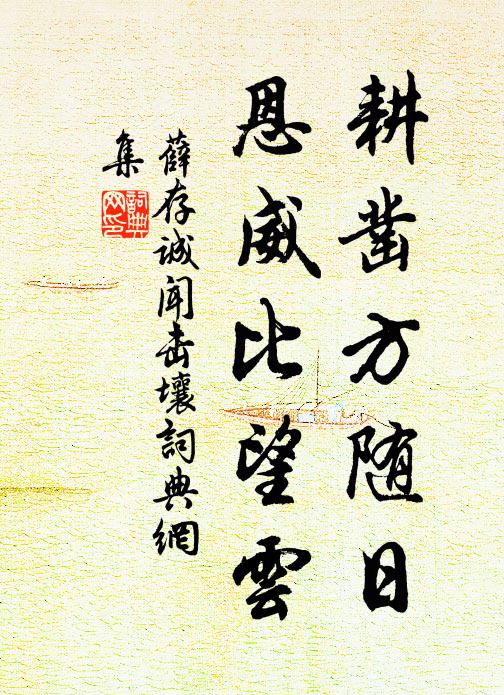 耕凿方随日
恩威比望雲
薛存诚闻击壤詞典網
集
詞典网印